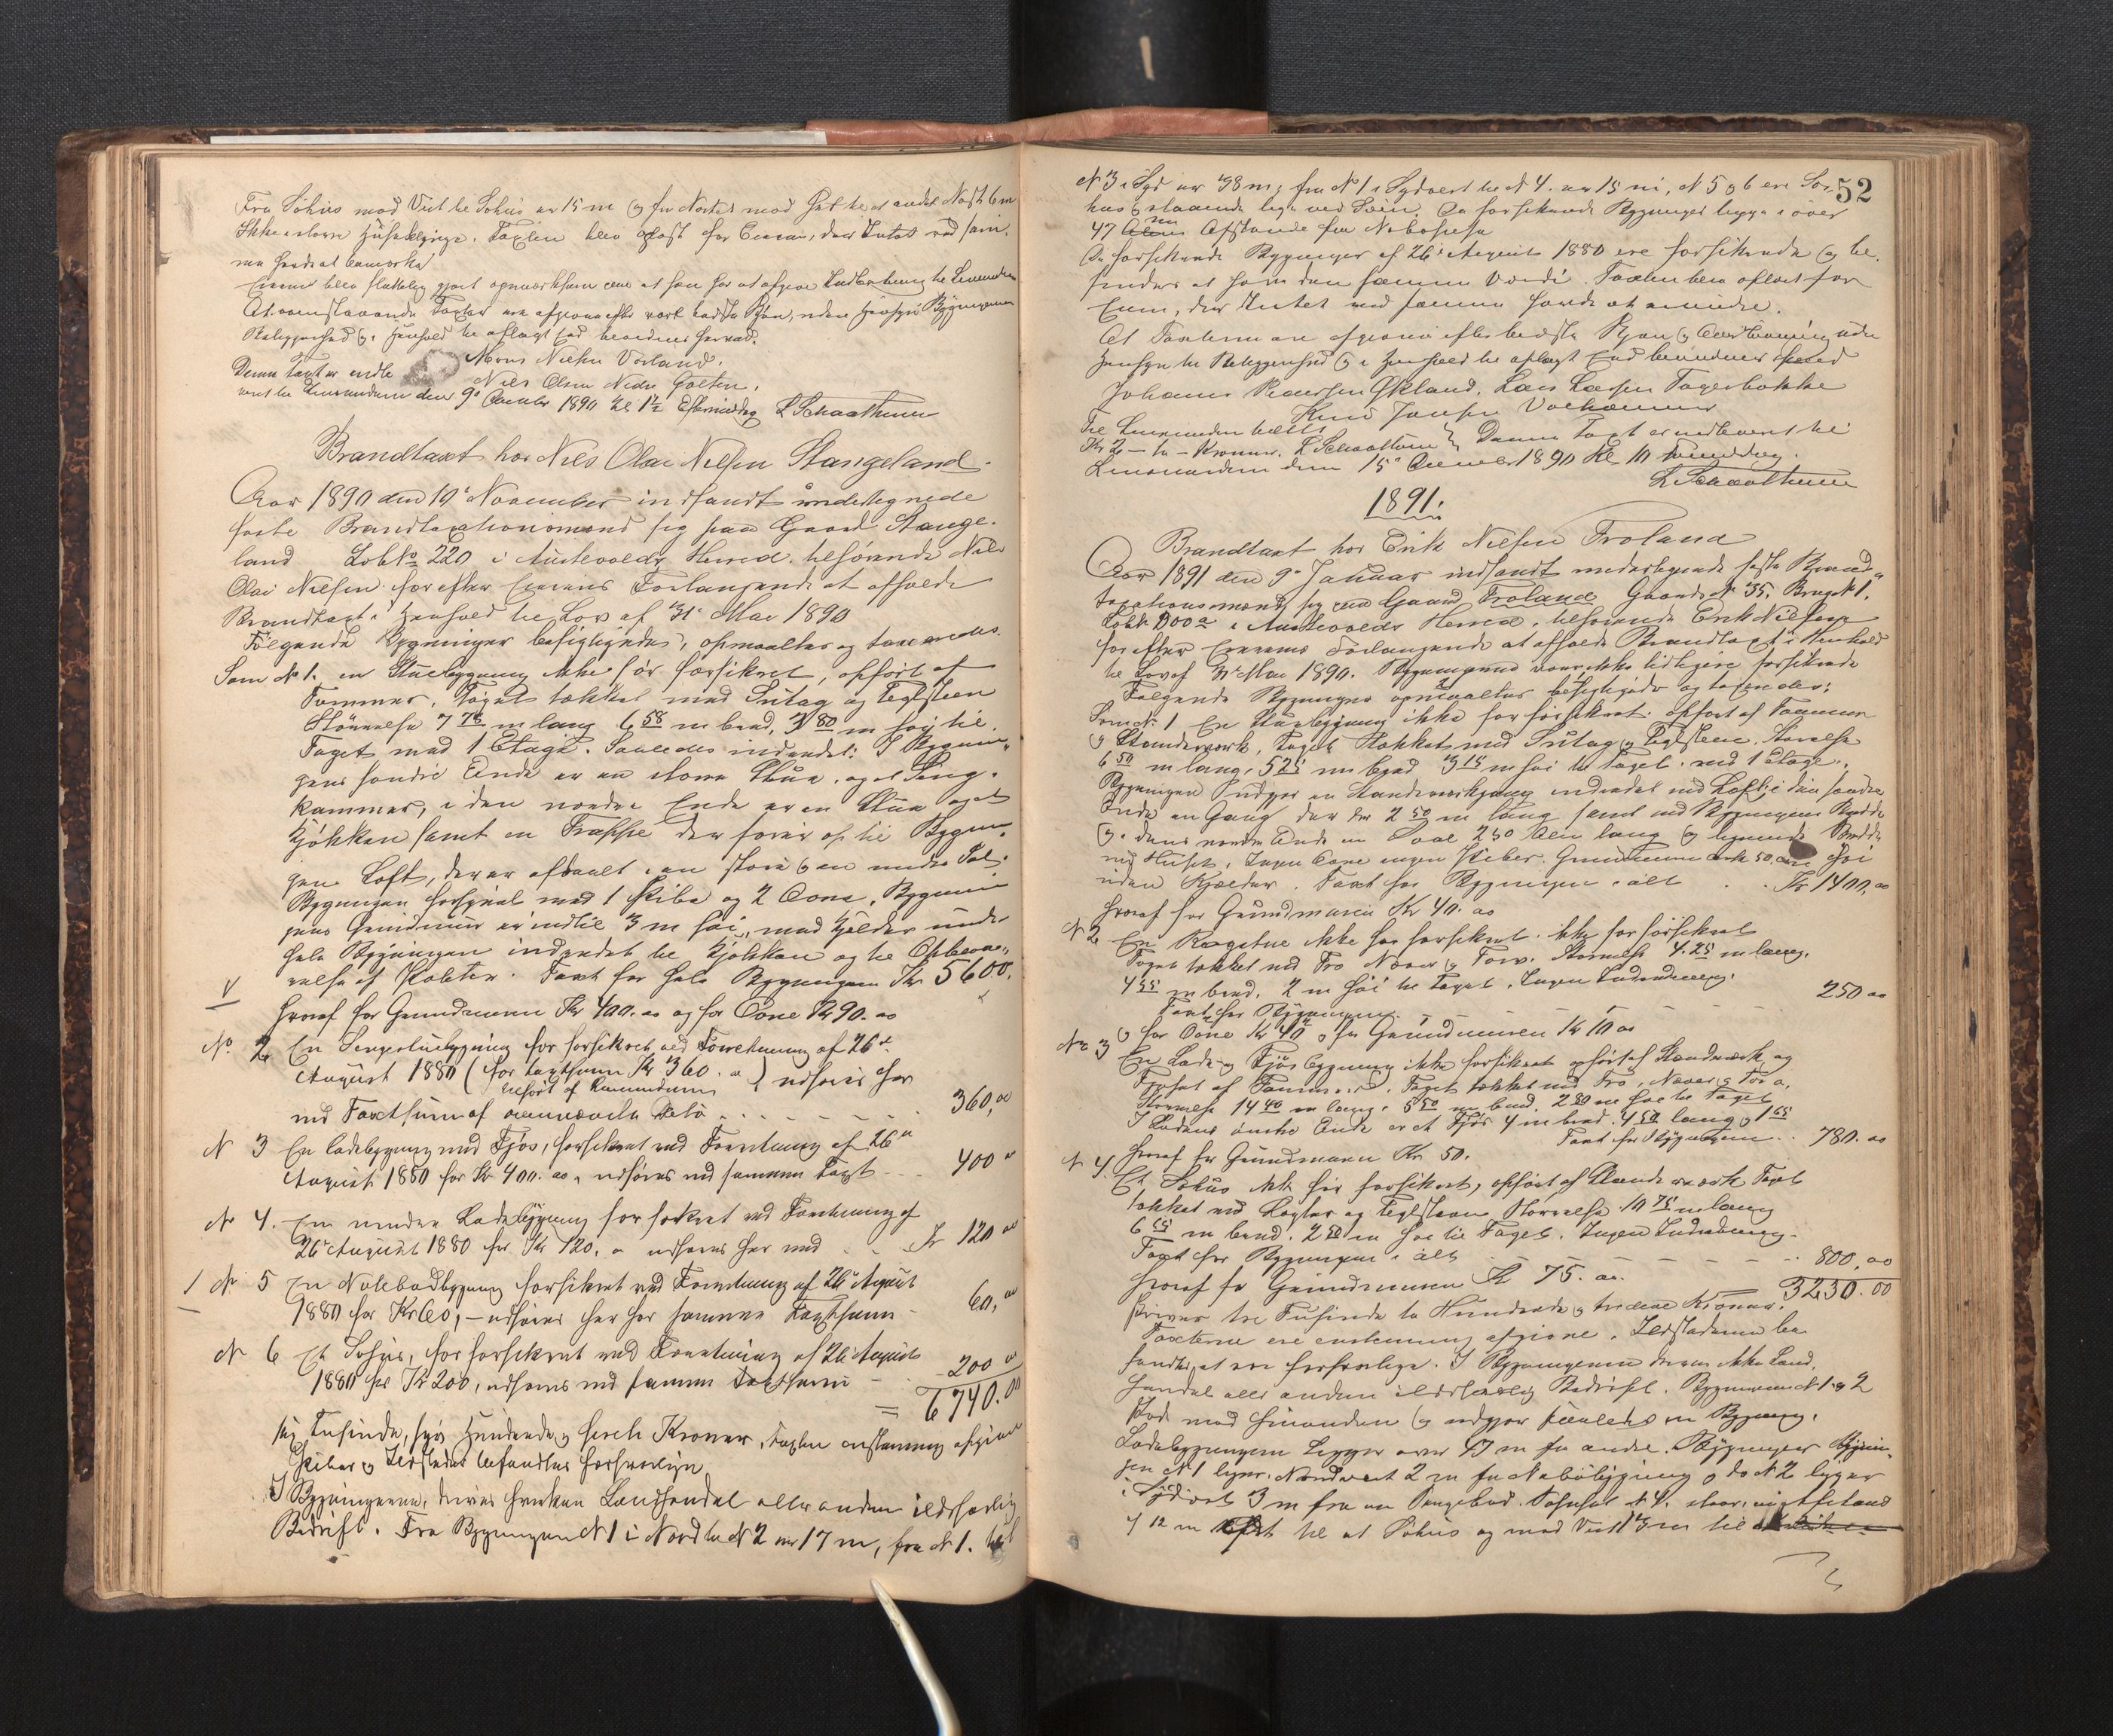 Fra Söhus mod Vest til Sohus er 15 m og fra Nordre mod Syd til et andet Nost 6 m
Ikke større Taxten blev oplæst for Eieren, der Intet ved sam-
me havde at bemærke
Eieren blev gjort opmærksom paa at han har at afgive til Lensmanden
At ovenstaaende Taxter ere afgivne efter vort bedste Skjøn, uden Hensyn til Bygningernes
Beliggenhed og i Henhold til aflagt Eed bevidnes herved.
Mons Nielsen Vorland.
Nils Olsen Nedre Golten.
Denne Taxt er indle
veret til Lensmanden den 9de December 1890 Kl. 1½ Eftermiddag L Schaathuun
Brandtaxt hos Nils Olai Nilsen Stangeland.
Aar 1890 den 19de November indfandt undertegnede
faste Brandtaxationsmænd sig paa Gaard Stange-
land Løb No 220 i Austevolds Herred tilhørende Nils
Olai Nielsen for efter Eierens Forlangende at afholde
Brandtaxt i Henhold til Lov af 31te Mai 1890
Følgende Bygninger besigtigedes, opmaaltes og taxeredes.
Som No 1. en Stuebygning ikke før forsikret, opført af
Tømmer, Taget tækket med Sutag og Teglsteen
Størrelse 7 75 m lang 6 58 m bred, 3 80 m høj til
Taget med 1 Etage. Saaledes indredet: I Bygnin-
gens søndre Ende er en større Stue og et Seng-
kammer, i den nordre Ende er en Stue og et
Kjøkken samt en Trappe der fører op til Bygnin-
gens Loft, der er afdeelt i en større og en mindre Sal.
Bygningen forsynet med 1 Pibe og 2 Ovne, Bygnin-
gens Grundmur er indtil 3 m høi, med Kjelder under
hele Bygningen indredet til Kjøkken og til Opbeva-
relse af Poteter. Taxt for hele Bygningen Kr 5600.
V
hvoraf for Grundmuren Kr 400.00 og for Ovne Kr 90.00
No. 2 En Sengestuebygning før forsikret ved Forretning af 26de
August 1880 (for taxtsum Kr 360.00) udføres her
med Taxtsum af ovennævnte Dato 360,00
N 3 En Ladebygning med Fjøs, forsikret ved Forretning af 26de
August 1880 for Kr 400.00, udføres med samme Taxt 400 00
No 4. En mindre Ladebygning forsikret ved Forretning af
26de August 1880 for Kr 120.00 udføres her med Kr 120 00
1 No 5 En Notebodbygning forsikret ved Forretning af 26de August
1880 for Kr 60,- udføres her for samme Taxtsum - 60,00
N 6 Et Sohus, før forsikret ved Forretning af 26de August
1880 for Kr 200, udføres med samme Taxtsum - 200 00
= 6740.00
sex Tusinde, syv Hundrede og førti Kroner, Taxten enstemmig afgivet
Piber og Ildsteder befandtes forsvarlige
I Bygningerne drives hverken Landhandel eller anden ildsfarlig
Bedrift. Fra Bygningen N 1 i Nord til N 2 er 17 m, fra N 1. til
52
N 3 i Syd er 38 m; fra No 1 i Sydvest til N 4. er 15 m, N 5 og 6 ere Sø-
huse staaende lige ved Søen. De forsikrede Bygninger ligge i over
47 m Afstande fra Nabohuse
De forsikrede Bygninger af 26de August 1880 ere forsikrede og be-
findes at have den samme Værdi. Taxten blev oplæst for
Eieren, der Intet ved samme havde at erindre.
At Taxterne ere afgivne efter bedste Skjøn og Overbeviisning uden
Hensyn til Beliggenhed og i Henhold til aflagt Eed bevidnes herved
Johannes Pedersen Økland. Lars Larsen Fagerbakke
Knud Jansen
Til Lensmanden betalt
Kr 2 - to - Kroner. L Schaathuun Denne Taxt er indleveret til
Lensmanden den 15de December 1890 Kl. 10 Formiddag.
L. Schaathuun
1891.
Brandtaxt hos Erik Nielsen Troland
Aar 1891 den 9de Januar indfandt undertegnede faste Brand-
taxationsmænd sig paa Gaard Troland Gaards No 35, Brugs No 1.
Løbe No 200 a i Austevolds Herred, tilhørende Erik Nielsen
for efter Eierens Forlangende at afholde Brandtaxt i Henhold
til Lov af 31te Mai 1890. Bygningerne vare ikke tidligere forsikrede
Følgende Bygninger opmaaltes besigtigedes og taxeredes:
Som No 1 En Stuebygning ikke før forsikret: opført af Tømmer
og Standerværk, Taget tækket med Sutag og Teglsteen. Størrelse
6 50 m lang, 5 25 m bred 3 15 m høi til Taget. med 1 Etage.
Bygningen udgjør en Standværksgang indredet med Loft; i den søndre
Ende en Gang der er 2 50 m lang samt med Bygningens Bredde
og i dens nordre Ende en Sval 2 50 lang og lignende Bredde
med Huset. Ingen Ovne ingen Piber. Grundmuren cirka 50 høi
uden Kjælder. Taxt for Bygningen i alt Kr 1400,00
hvoraf for Grundmuren Kr 40.00
N 2 En Røgstue ikke før forsikret ikke før forsikret
Taget tækket med Tro Næver og Torv. Størrelse 4.25 m lang.
4 55 m bred, 2 m høi til Taget. Ingen Indredning.
Taxt for Bygningen 250 00
for Ovne Kr 40 og for Grundmuren Kr 10 00
No 3 En Lade- og Fjøsbygning ikke forsikret opført af Standværk og
Fjøset af Tømmer. Taget tækket med Tro, Næver og Torv.
Størrelse 14 40 m lang, 5 50 m bred 2 80 m høi til Taget
I Ladens Ende er et Fjøs 4 m bred 4 50 lang og 1 65
Taxt for Bygningen 780.00
hvoraf for Grundmuren Kr 50.
N 4. Et Søhus ikke før forsikret, opført af Standerværk Taget
tækket med Lægter og Teglsteen Størrelse 10 75 m lang
6 65 m bred. 2 50 m høi til Taget. Ingen Indredning.
Taxt for Bygningen i alt 800,00
hvoraf for Grundmuren Kr 75.00. 3230.00
skriver tre Tusinde to Hundrede og tredive Kroner.
Taxterne ere enstemmig afgivne. Ildstederne be-
fandtes at være forsvarlige. I Bygningerne drives ikke Land-
handel eller anden ildsfarlig Bedrift. Bygningerne No 1 og 2
stode mod hinanden og udgjør saaledes en Bygning.
Ladebygningen ligger over 47 m fra andre Bygninger Bygnin-
gen N 1 ligger i Nordvest 2 m fra Nabobygning og do N 2 ligger
i Sydvest 3 m fra en Sengebod. Søhuset N 4. staar i Afstand
4 12 m til et Søhus og mod Vest m til